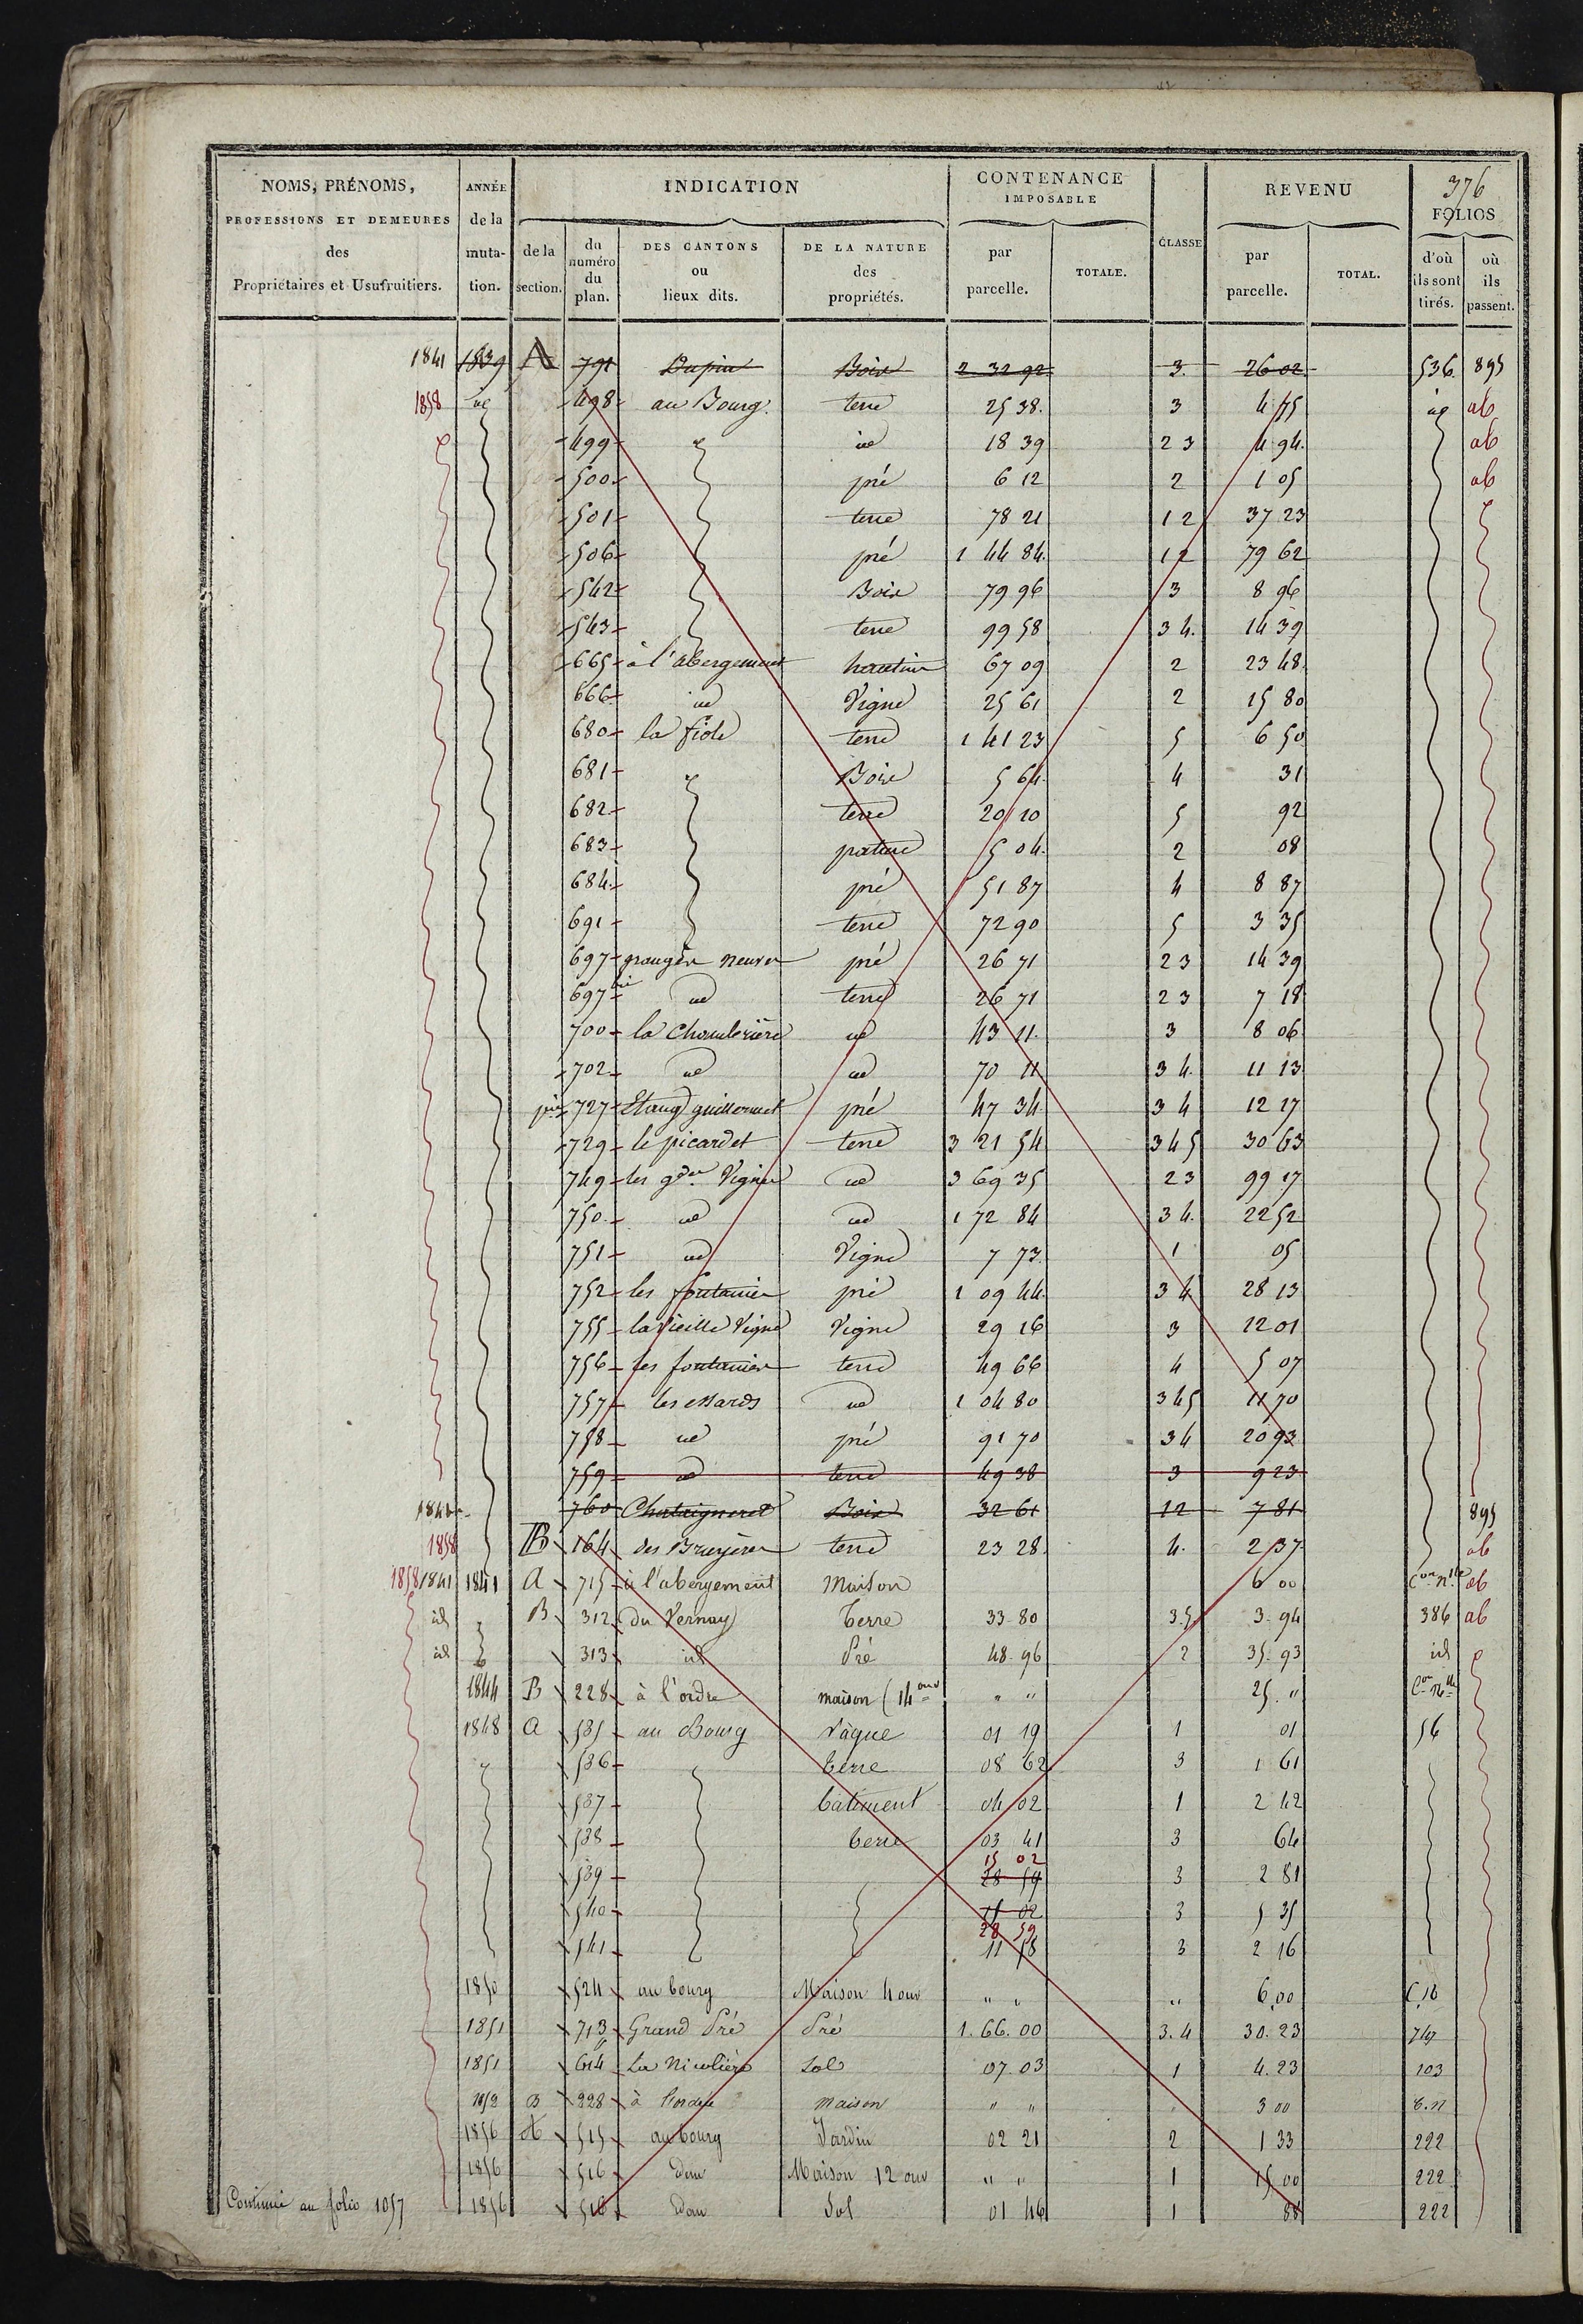 NOMS, PRÉNOMS, ANNÉE INDICATION CONTENANCE REVENU 376
IMPOSABLE
PROFESSIONS ET DEMEURES de la FOLIOS
des muta- de la du numéro du plan. DES CANTONS ou lieux dits. DE LA NATURE des propriétés. par parcelle. TOTALE. CLASSE par parcelle. TOTAL. d'où ils sont tirés. où ils passent.
Propriétaires et Usufruitiers. tion. section.
1841 1839 A 791 Dupin Bois 2 32 92 3. 26 02 536 895
1858 id 498 au Bourg terre 25 38. 3 4 75 id ab
499 id 18 39 2 3 4 94. ab
500 pré 6 12 2 1 05 ab
501 terre 78 21 1 2 37 23
506 pré 1 44 84. 1 2 79 62
542 Bois 79 96 3 8 96
543 terre 99 58 3 4. 14 39
665 à l'abergement hautin 67 09 2 23 48.
666 id Vigne 25 61 2 15 80
680 la fiole terre 1 41 23 5 6 50
681 Bois 5 64 4 31
682 terre 20 10 5 92
683 pature 5 04. 2 08
684 pré 51 87 4 8 87
691 terre 72 90 5 3 35
697 granges neuves pré 26 71 2 3 14 39
697 bis id terre 26 71 2 3 7 18
700 la Chamberière id 43 11. 3 8 06
702 id id 70 11 3 4. 11 13
727 Etang guillermet pré 47 34 3 4 12 17
729 le picardet terre 3 21 54 3 4 5 30 63
749 les gdes Vignes id 3 69 35 2 3 99 17
750 id id 1 72 84 3 4. 22 52
751 id Vigne 7 73 1 05
752 les fontaines pré 1 09 44. 3 4 28 13
755 la vieille Vigne Vigne 29 16 3 12 01
756 les fontaines terre 49 66 4 5 07
757 les essards id 1 04 80 3 4 5 11 70
758 id pré 91 70 3 4 20 93
759 id terre 49 38 3 9 23
760 Chataigneret Bois 32 61 1 2 7 81 895
1858 B 164 des Bruyères terre 23 28. 4. 2 37 ab
1858 1841 1841 A 715 à l'abergement Maison 6 00 Con nlle ab
id B 312 du Vernay terre 33-80 3.5 3-94 386 ab
id 313 id Pré 48-96 2 35-93 id
1844 B 228 à l'ordre maison (14 ouv " " 25. " Con nlle
1848 A 535 au Bourg Vague 01 19 1 01 56
536 terre 08 62 3 1 61
537 batiment 04 02 1 2 42
538 terre 03 41 3 64
15 02
539 28 59 3 2 81
540 15 02 3 5 35
28 59
541 11 58 3 2 16
1850 524 au bourg Maison 4 ouv " " " 6,00 C.N
1851 713 Grand Pré Pré 1.66.00 3.4 30.23 747
1851 614 La Nicolière Sol 07-03 1 4.23 103
1852 B 228 à l'ordre maison " " 3 00 C.N
1856 A 515 au bourg Jardin 02 21 2 1 33 222
1856 516 Dans Maison 12 ouv " " 1 15 00 222
Continué au folio 1057 1856 516 Dans Sol 01 46 1 88 222